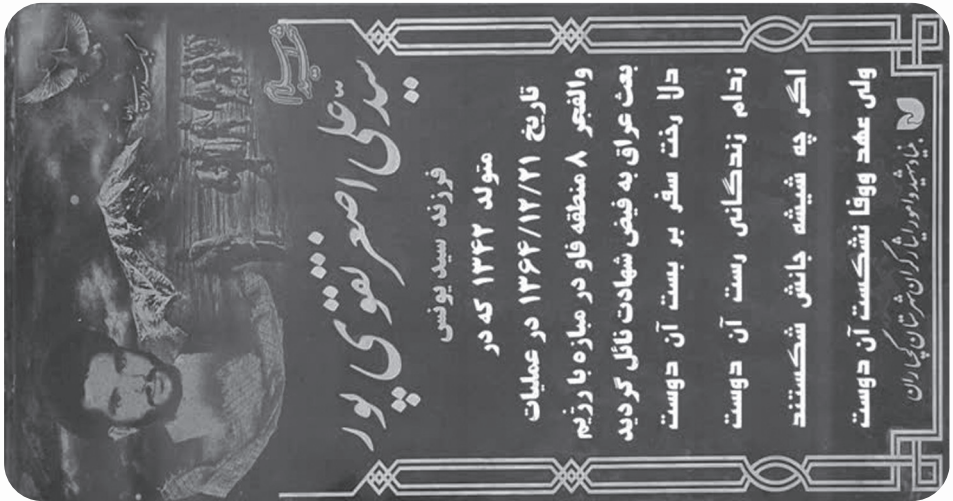 شهید
سید علی اصغر تقوی پور
فرزند سید یونس
متولد ۱۳۴۲ که در
تاریخ ۱۳۶۴/۱۲/۲۱ در عملیات
والفجر ۸ منطقه فاو در مبارزه با رژیم
بعث عراق به فیض شهادت نائل گردید
دلا رخت سفر بر بست آن دوست
زدام زندگانی رست آن دوست
اگر چه شیشه جانش شکستند
ولی عهد ووفا نشکست آن دوست
بنیاد شهید و امور ایثارگران شهرستان گچساران